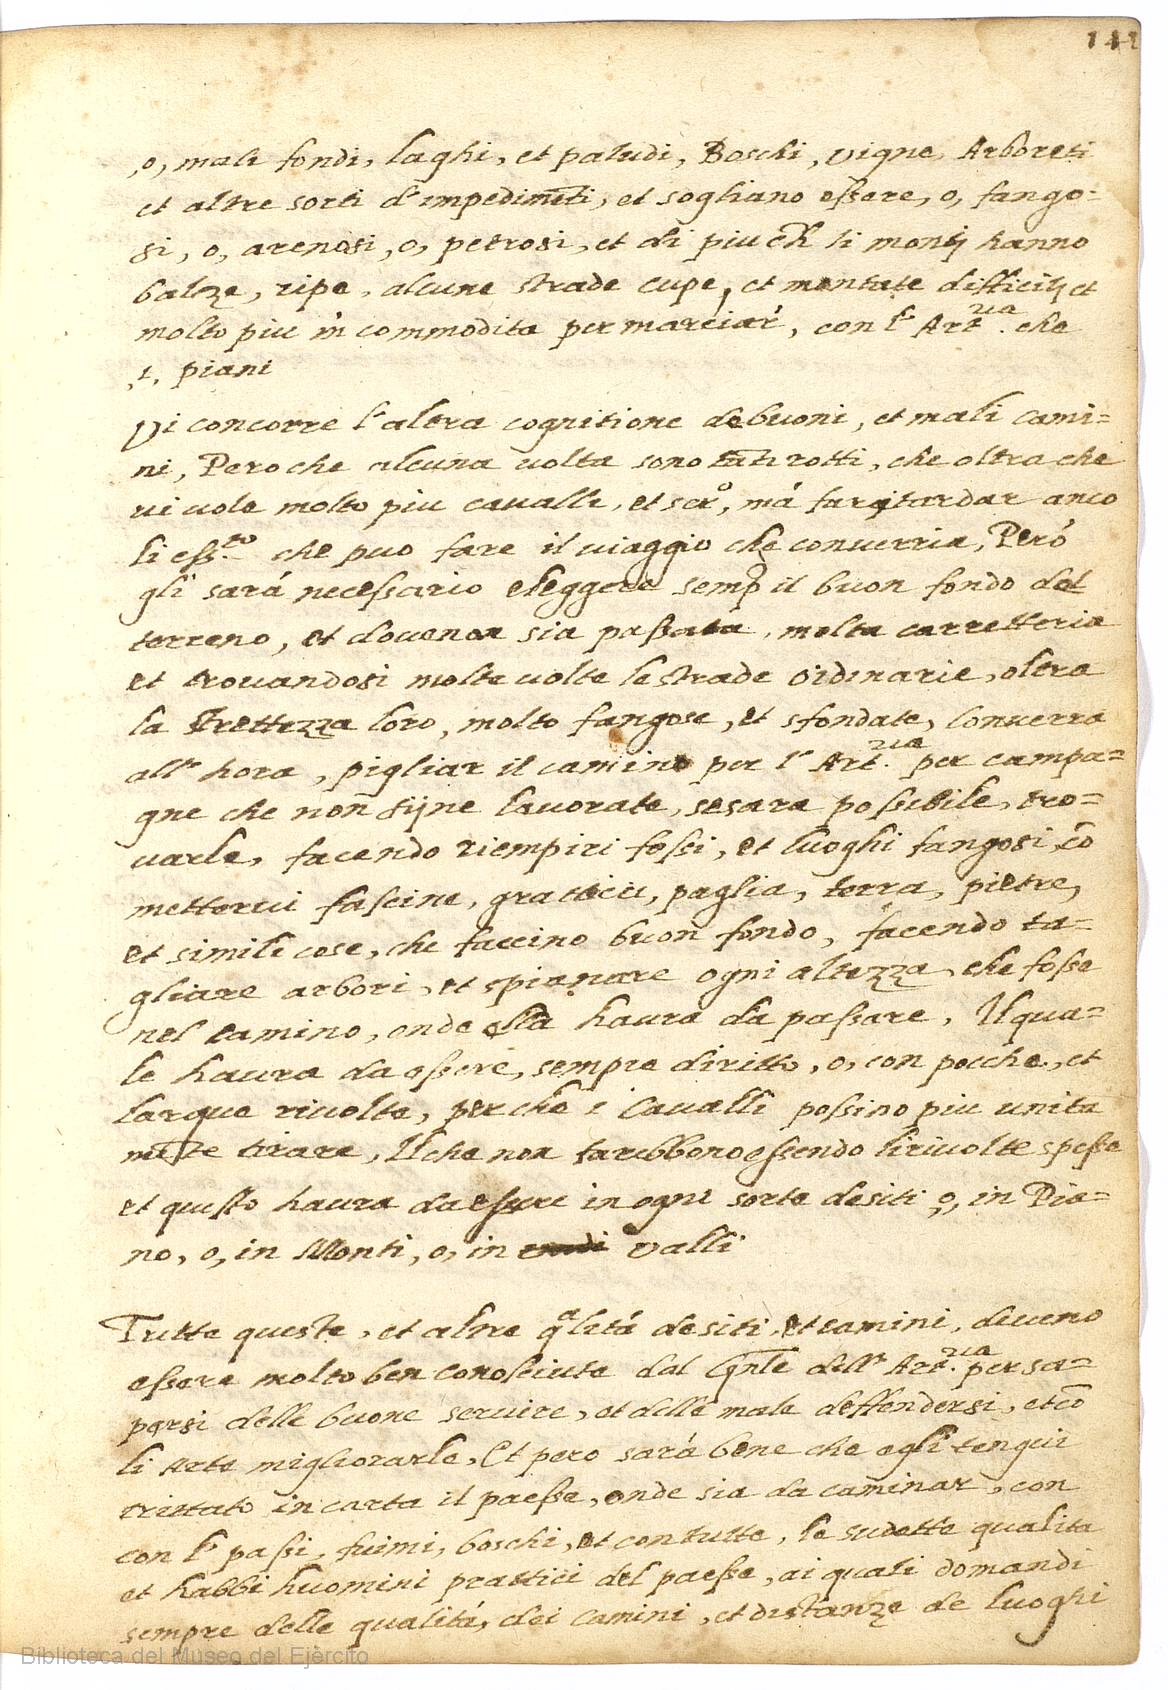 141
,o, mali fondi, laghi, et paludi, Boschi, vigne, Arboreti
et altre sorti d'impedimti, et sogliano essere, o, fango=
si, o, arenosi, o, petrosi, et di piu ch li monti hanno
balze, ripe, alcune strade cupe, et montate difficili, et
molto piu incommodita per marciar, con l' Art.ria che
,i, piani
Vi concorre l'altra cognitione de buoni, et mali cami=
ni, Pero che alcuna volta sono tāti rotti, che oltra che
vi vole molto piu cavalli, et , má far tardar anco
li ess.to che puo fare il viaggio che converria, Peró
gli sará necessario eleggere semp il buon fondo del
terreno, et dove non sia passata, molta carretteria
et trovandosi molte volte le strade ordinarie, oltra
la strettezza loro, molto fangose, et sfondate, Converra
all' hora, pigliar il camino per l' Art.ria per campa=
gne che non sijne lavorate, se sara possibile, tro=
varle, facendo riempiri fossi, et luoghi fangosi, cō
mettervi fascine, gratticii, paglia, terra, pietre,
et simili cose, che faccino buon fondo, facendo ta=
gliare arbori, et spianare ogni altezza, che fosse
nel camino, onde ella haura da passare, Il qua=
le haura da essere, sempre diritto, o, con pocche, et
largue rivolte, perche i Cavalli possino piu unita
mēte tirare, Il che non farebbono essendo li rivolte spesse
et questo haura da essere in ogni sorte de siti, o, in Pia=
no, o, in Monti, o, in valli
Tutte queste, et altre qalitá de siti, et camini, deveno
essere molto ben conosciute dal Gnle dell' Art.ria per sa=
persi delle buone servire, et delle male deffendersi, et cō
li Arte migliorarle, Et pero sará bene che egli tengui
trittato in carta il paesse, onde sia da caminar, con
con li passi, fuimi, boschi, et con tutte, le sudette qualita
et habbi huomini prattici del paesse, ai quali domandi
sempre delle qualitá, dei camini, et distanze de luoghi
Biblioteca del Museo del Ejército